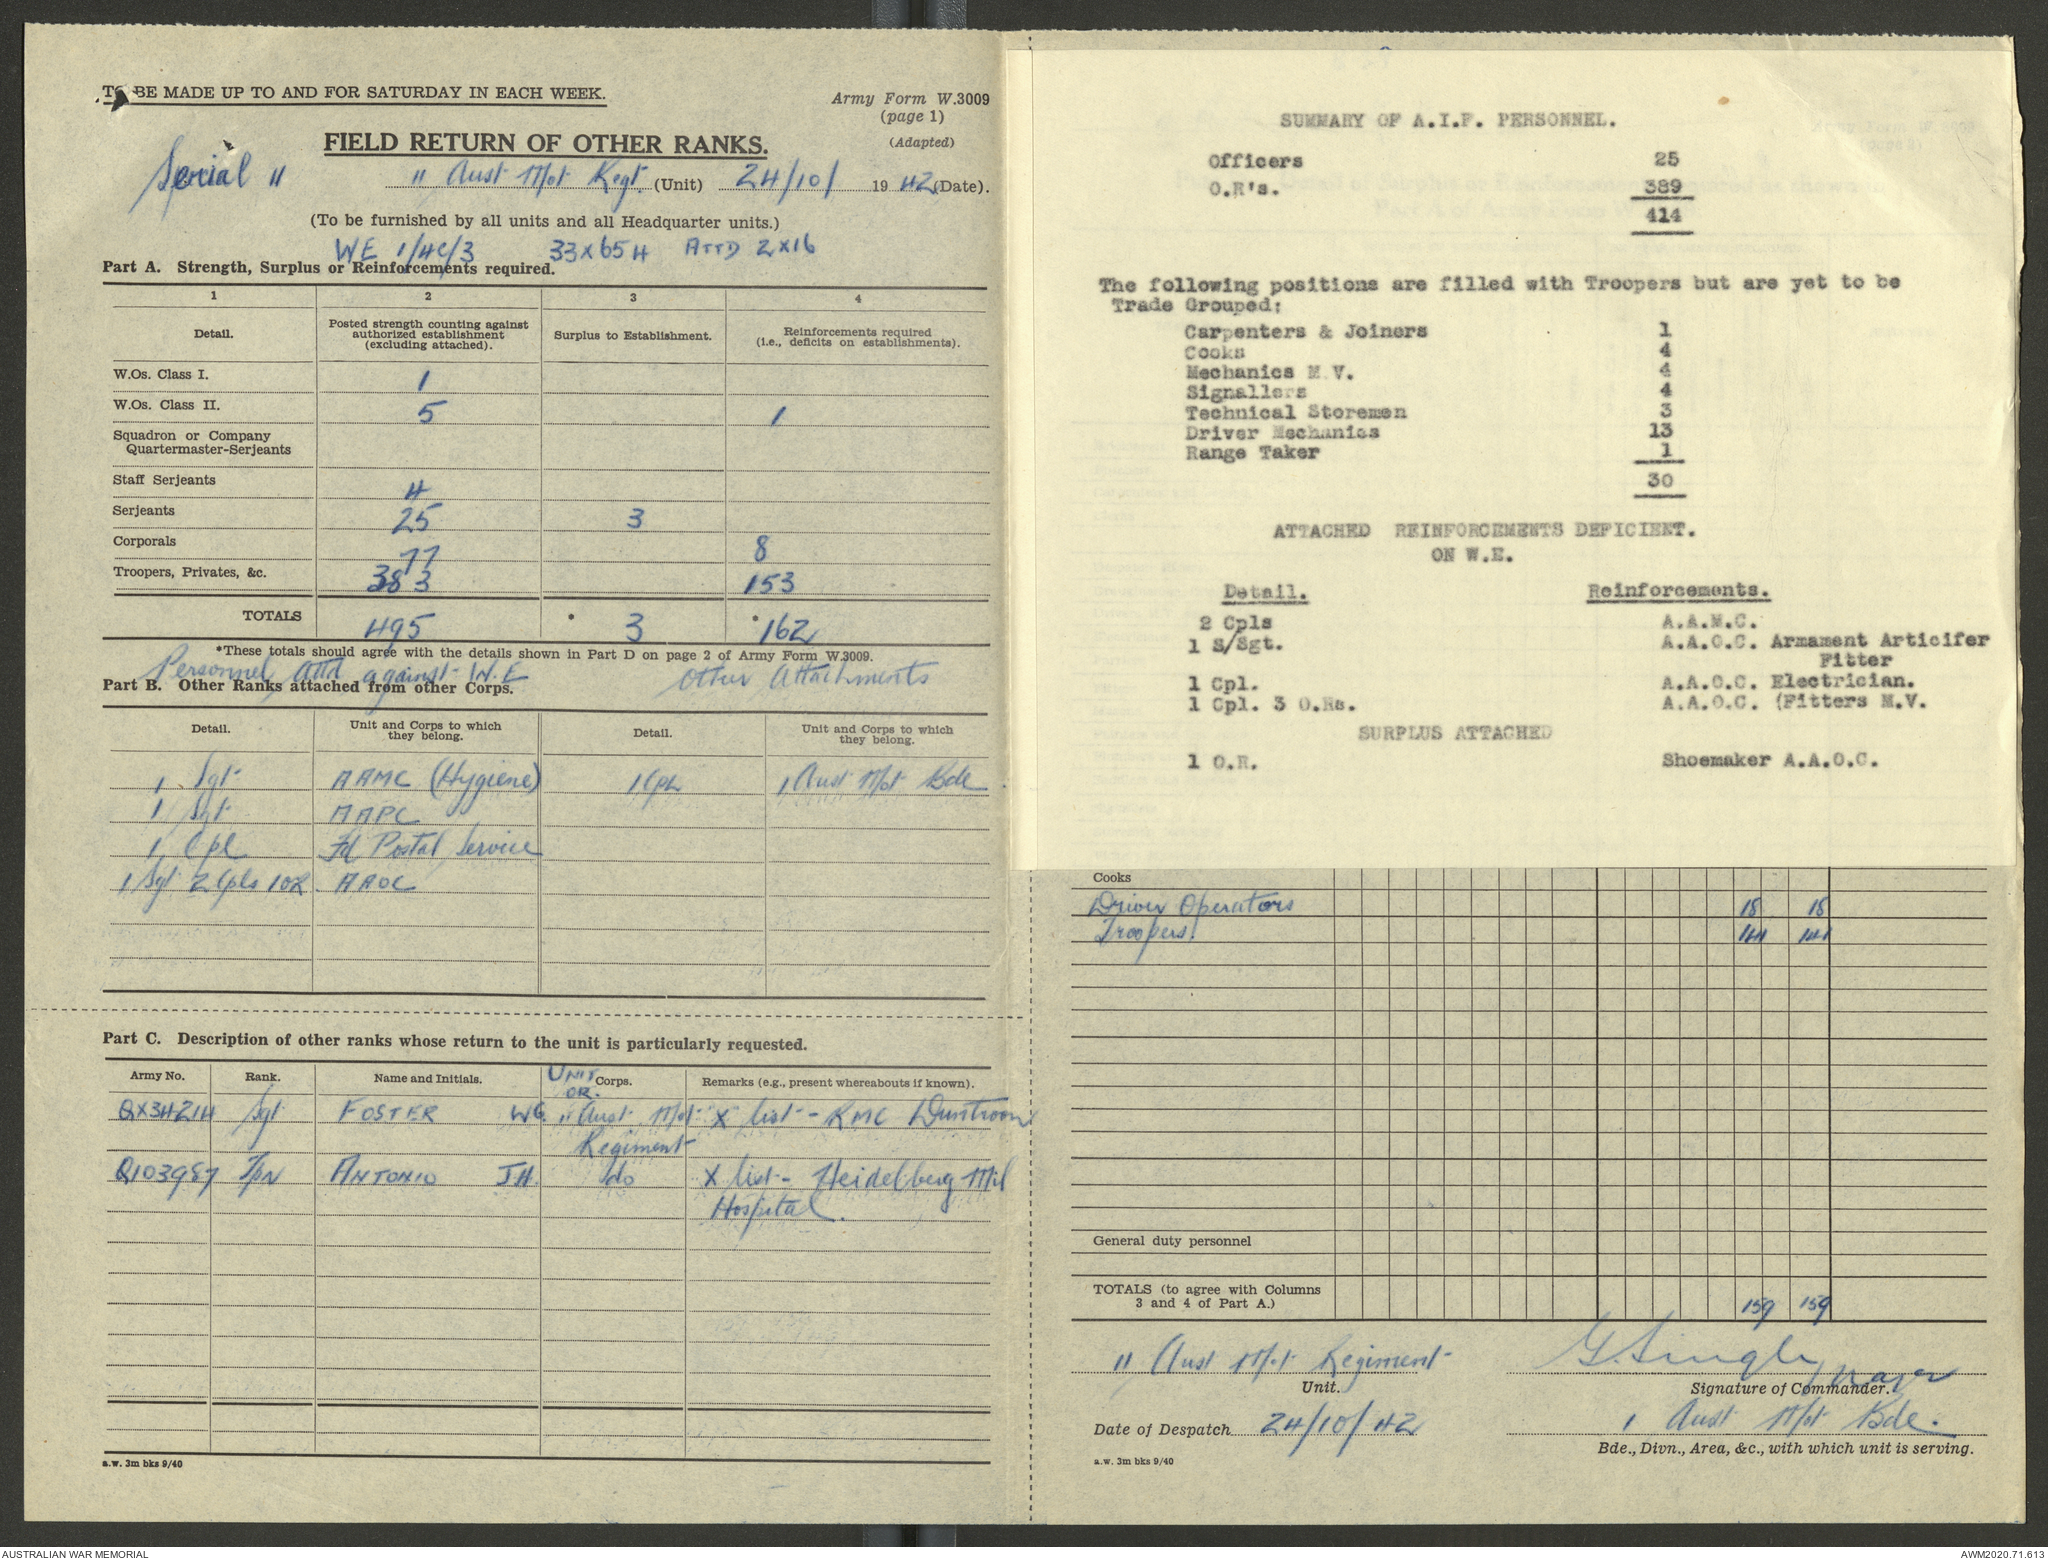 TO BE MADE UP TO AND FOR SATURDAY IN EACH WEEK.
Army Form W.3009
(page 1)
(Adapted)
FIELD RETURN OF OTHER RANKS.
Serial 11
11 Aust Mot Regt. (Unit) 24/10/ 1942 (Date).
(To be furnished by all units and all Headquarter units.)
WE 1/4C/3 33 x 654 ATTD 2 x 16
Part A. Strength, Surplus or Reinforcements required.
1 2 3 4
Detail. Posted strength counting against authorized establishment (excluding attached). Surplus to Establishment. Reinforcements required (i.e., deficits on establishments).
W.Os. Class I. 1
W.Os. Class II. 5 1
Squadron or Company
Quartermaster-Serjeants
Staff Serjeants 4
Serjeants 25 3
Corporals 77 8
Troopers, Privates, &c. 383 153
TOTALS 495 * 3 * 162
*These totals should agree with the details shown in Part D on page 2 of Army Form W.3009.
Personnel Attd against W.E Other Attachments
Part B. Other Ranks attached from other Corps.
Detail. Unit and Corps to which they belong. Detail. Unit and Corps to which they belong.
1 Sgt AAMC (Hygiene) 1 Cpl 1 Aust Mot Bde
1 Sgt AAPC
1 Cpl Fd Postal Service
1 Sgt 2 Cpls 1 OR AAOC
Part C. Description of other ranks whose return to the unit is particularly requested.
Army No. Rank. Name and Initials. UNIT OR. Corps. Remarks (e.g., present whereabouts if known).
QX34214 Sgt FOSTER WG. 11 Aust Mot X list - RMC Duntroon
Regiment
Q103987 Tpr ANTONIO J.H. do X list - Heidelberg Mil
Hospital.
a.w. 3m bks 9/40
SUMMARY OF A.I.F. PERSONNEL.
Officers 25
O.R's. 389
414
The following positions are filled with Troopers but are yet to be
Trade Grouped;
Carpenters & Joiners 1
Cooks 4
Mechanics M.V. 4
Signallers 4
Technical Storemen 3
Driver Mechanics 13
Range Taker 1
30
ATTACHED REINFORCEMENTS DEFICIENT.
ON W.E.
Detail. Reinforcements.
2 Cpls A.A.M.C.
1 S/Sgt. A.A.O.C. Armament Articifer
Fitter
1 Cpl. A.A.O.C. Electrician.
1 Cpl. 3 O.Rs. A.A.O.C. (Fitters M.V.
SURPLUS ATTACHED
1 O.R. Shoemaker A.A.O.C.
Cooks
Driver Operators 18 18
Troopers. 141 141
General duty personnel
TOTALS (to agree with Columns
3 and 4 of Part A.) 159 159
11 Aust Mot Regiment
Unit.
Major
Signature of Commander.
Date of Despatch 24/10/42
1 Aust Mot Bde.
Bde., Divn., Area, &c., with which unit is serving.
a.w. 3m bks 9/40
AUSTRALIAN WAR MEMORIAL
AWM2020.71.613